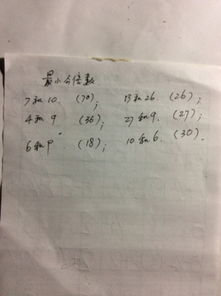 最小公倍数
7和10.(70); 13和26.(26);
4和9(36); 27和9.(27);
6和9(18); 10和6.(30).